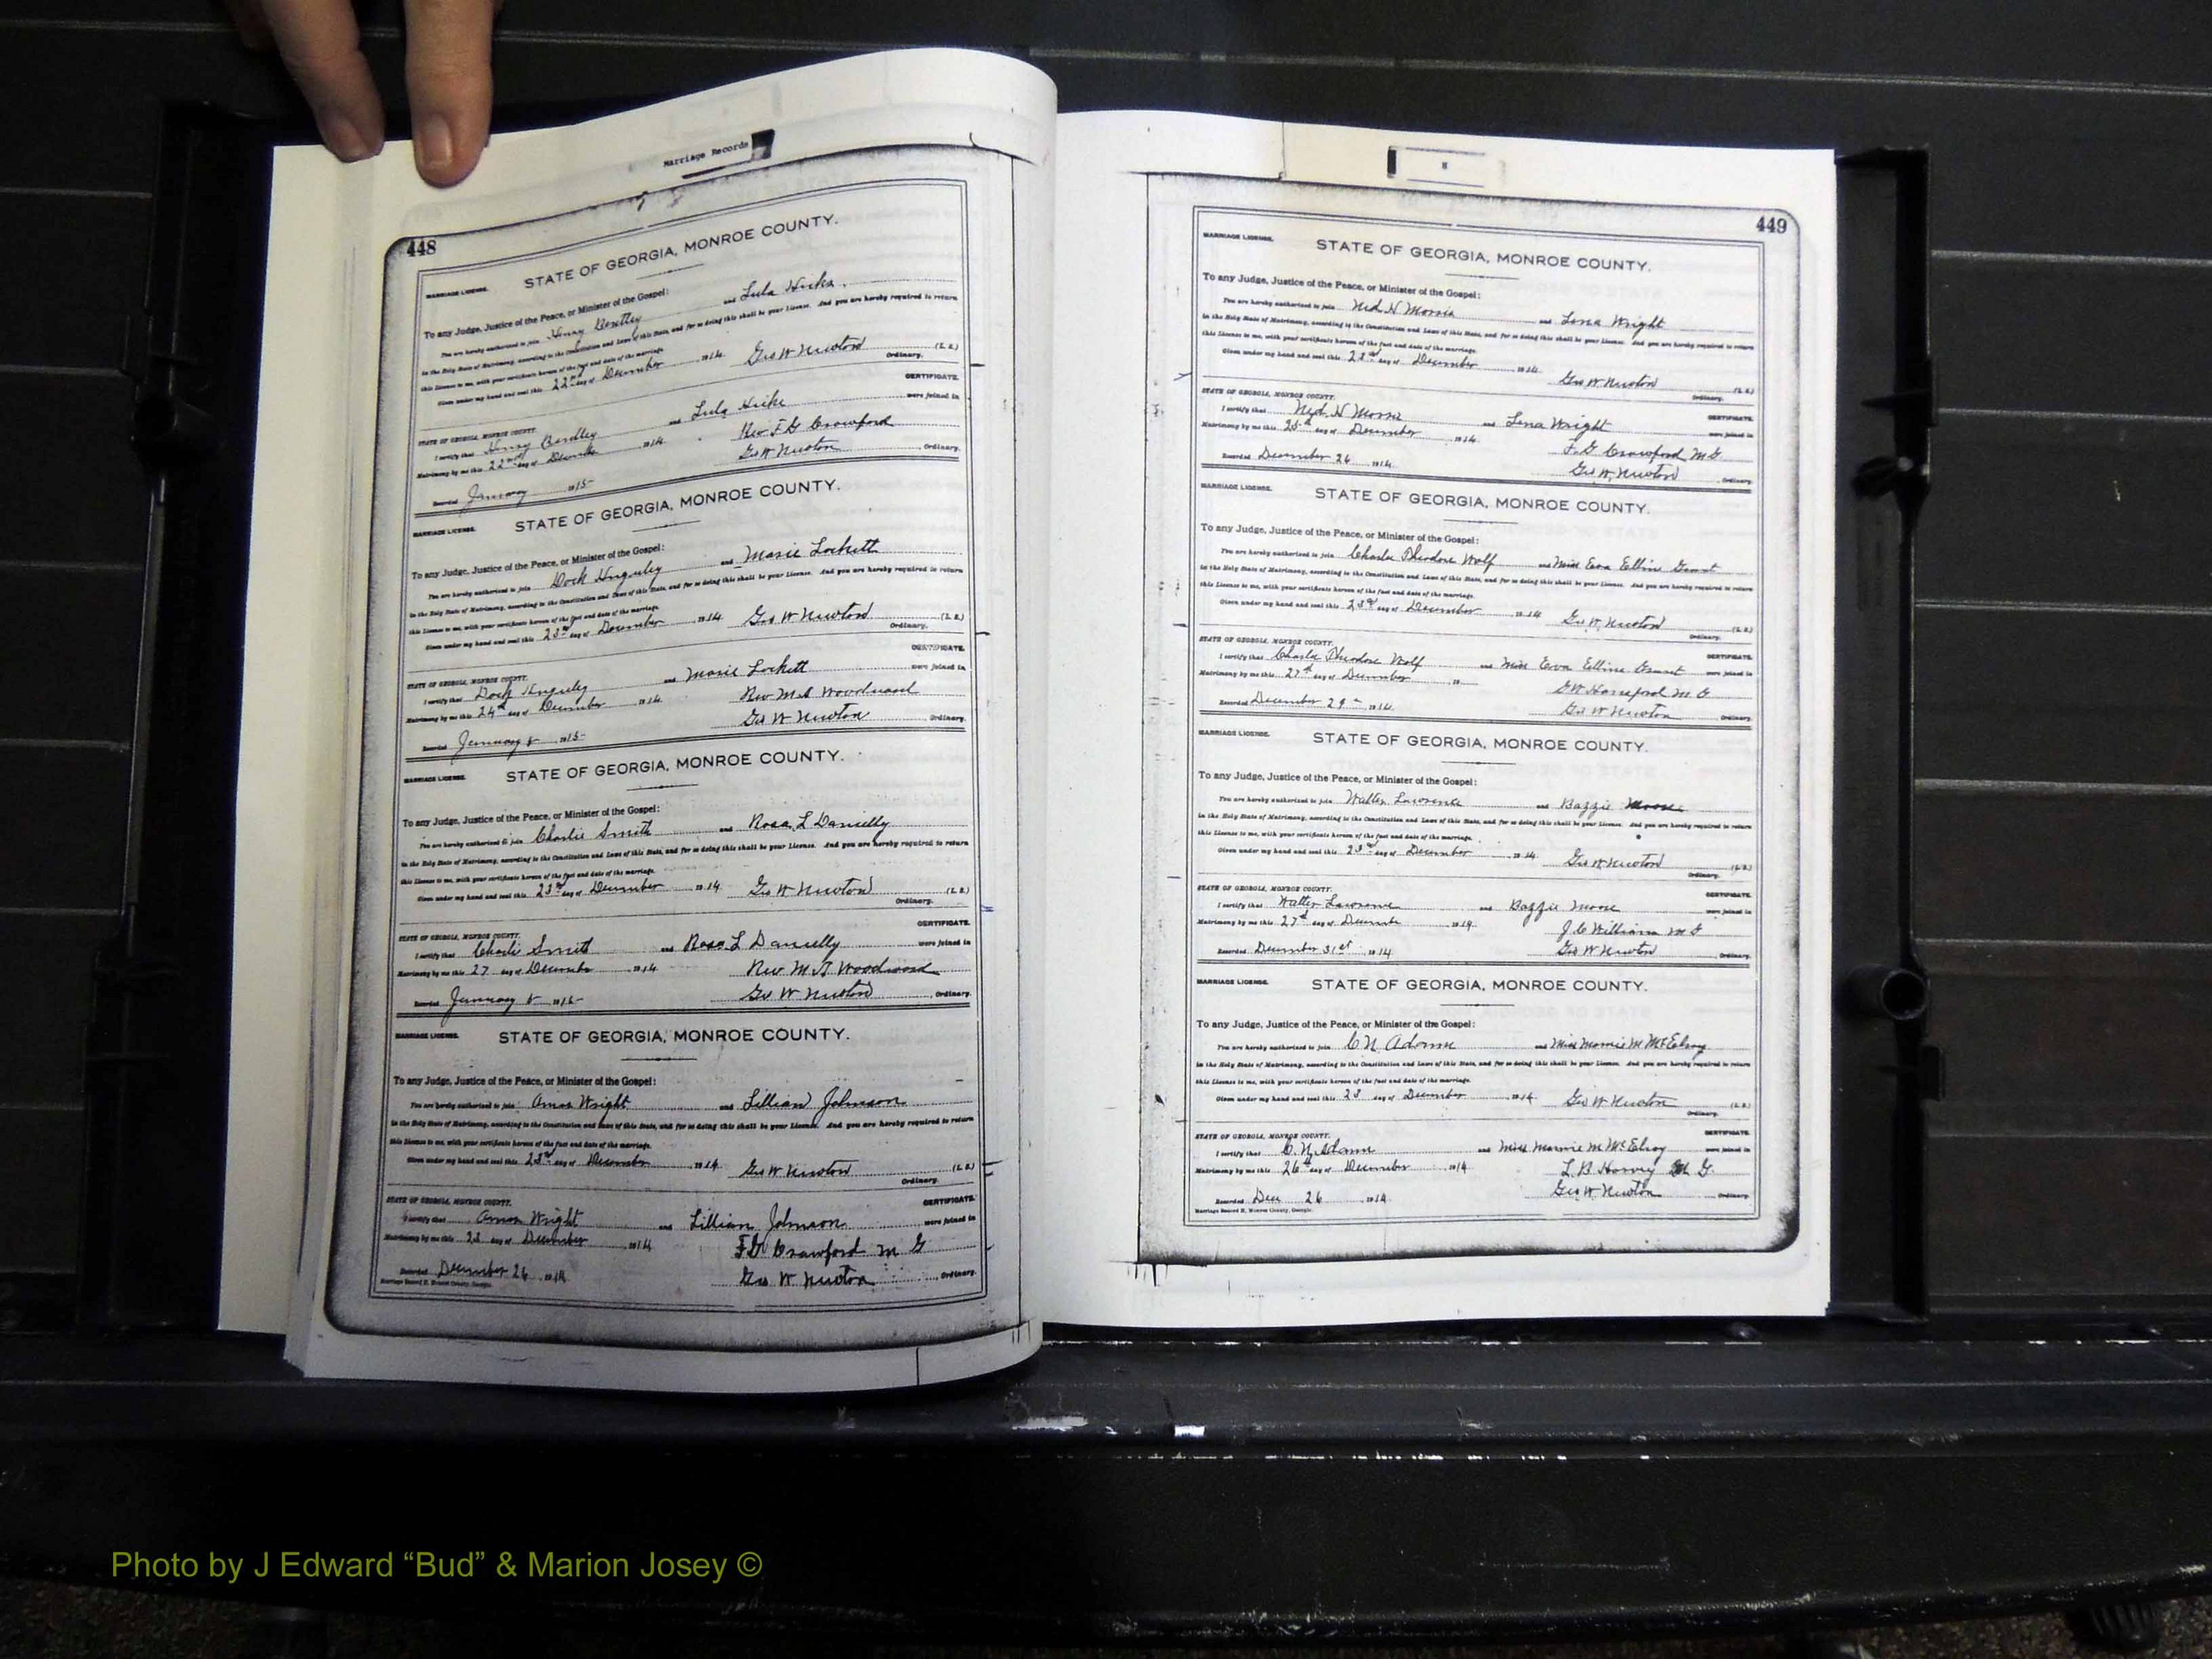 Marriage Records
448
MARRIAGE LICENSE.
STATE OF GEORGIA, MONROE COUNTY.
To any Judge, Justice of the Peace, or Minister of the Gospel:
You are hereby authorized to join Henry and Lula Hicks
in the Holy State of Matrimony, according to the Constitution and Laws of this State, and for so doing this shall be your License. And you are hereby required to return
this License to me, with your certificate hereon of the fact and date of the marriage.
Given under my hand and seal this 22nd day of December 1914 Geo W Newton (L. S.)
Ordinary.
CERTIFICATE.
STATE OF GEORGIA, MONROE COUNTY.
I certify that Henry and Lula Hicks were joined in
Matrimony by me this 22nd day of December 1914. Rev F G Crawford
Geo W Newton, Ordinary.
Recorded January 1915
MARRIAGE LICENSE.
STATE OF GEORGIA, MONROE COUNTY.
To any Judge, Justice of the Peace, or Minister of the Gospel:
You are hereby authorized to join Dock and Marie Lockett
in the Holy State of Matrimony, according to the Constitution and Laws of this State, and for so doing this shall be your License. And you are hereby required to return
this License to me, with your certificate hereon of the fact and date of the marriage.
Given under my hand and seal this 23rd day of December 1914 Geo W Newton (L. S.)
Ordinary.
CERTIFICATE.
STATE OF GEORGIA, MONROE COUNTY.
I certify that Dock and Marie Lockett were joined in
Matrimony by me this 24th day of December 1914 Rev M S Woodward
Geo W Newton, Ordinary.
Recorded January 8 1915
MARRIAGE LICENSE.
STATE OF GEORGIA, MONROE COUNTY.
To any Judge, Justice of the Peace, or Minister of the Gospel:
You are hereby authorized to join Charlie Smith and Rosa L Danielly
in the Holy State of Matrimony, according to the Constitution and Laws of this State, and for so doing this shall be your License. And you are hereby required to return
this License to me, with your certificate hereon of the fact and date of the marriage.
Given under my hand and seal this 23rd day of December 1914 Geo W Newton (L. S.)
Ordinary.
CERTIFICATE.
STATE OF GEORGIA, MONROE COUNTY.
I certify that Charlie Smith and Rosa L Danielly were joined in
Matrimony by me this 27 day of December 1914. Rev M S Woodward
Recorded January 8 1915 Geo W Newton, Ordinary.
MARRIAGE LICENSE.
STATE OF GEORGIA, MONROE COUNTY.
To any Judge, Justice of the Peace, or Minister of the Gospel:
You are hereby authorized to join Amos Wright and Lillian Johnson
in the Holy State of Matrimony, according to the Constitution and Laws of this State, and for so doing this shall be your License. And you are hereby required to return
this License to me, with your certificate hereon of the fact and date of the marriage.
Given under my hand and seal this 23rd day of December 1914 Geo W Newton (L. S.)
Ordinary.
CERTIFICATE.
STATE OF GEORGIA, MONROE COUNTY.
I certify that Amos Wright and Lillian Johnson were joined in
Matrimony by me this 23 day of December 1914 F G Crawford M G
Recorded December 26 1914 Geo W Newton, Ordinary.
Marriage Record H, Monroe County, Georgia.
449
MARRIAGE LICENSE.
STATE OF GEORGIA, MONROE COUNTY.
To any Judge, Justice of the Peace, or Minister of the Gospel:
You are hereby authorized to join Ned N and Lena Wright
in the Holy State of Matrimony, according to the Constitution and Laws of this State, and for so doing this shall be your License. And you are hereby required to return
this License to me, with your certificate hereon of the fact and date of the marriage.
Given under my hand and seal this 23rd day of December 1914.
Geo W Newton (L. S.)
Ordinary.
STATE OF GEORGIA, MONROE COUNTY. CERTIFICATE.
I certify that Ned N and Lena Wright were joined in
Matrimony by me this 25th day of December 1914. F. G. Crawford M G
Recorded December 26 1914. Geo W. Newton, Ordinary.
MARRIAGE LICENSE.
STATE OF GEORGIA, MONROE COUNTY.
To any Judge, Justice of the Peace, or Minister of the Gospel:
You are hereby authorized to join Charlie Theodore Wolf and Miss Eva Grant
in the Holy State of Matrimony, according to the Constitution and Laws of this State, and for so doing this shall be your License. And you are hereby required to return
this License to me, with your certificate hereon of the fact and date of the marriage.
Given under my hand and seal this 23rd day of December 1914 Geo W. Newton (L. S.)
Ordinary.
STATE OF GEORGIA, MONROE COUNTY. CERTIFICATE.
I certify that Charlie Theodore Wolf and Miss Grant were joined in
Matrimony by me this 27th day of December 19 M G
Recorded December 29th 1914. Geo W Newton Ordinary.
MARRIAGE LICENSE.
STATE OF GEORGIA, MONROE COUNTY.
To any Judge, Justice of the Peace, or Minister of the Gospel:
You are hereby authorized to join Walter Lawrence and Bazzie Moore
in the Holy State of Matrimony, according to the Constitution and Laws of this State, and for so doing this shall be your License. And you are hereby required to return
this License to me, with your certificate hereon of the fact and date of the marriage.
Given under my hand and seal this 23rd day of December 1914 Geo W Newton (L. S.)
Ordinary.
STATE OF GEORGIA, MONROE COUNTY. CERTIFICATE.
I certify that Walter Lawrence and Bazzie Moore were joined in
Matrimony by me this 27th day of December 1914. J. C Williams M G
Recorded December 31st 1914 Geo W Newton Ordinary.
MARRIAGE LICENSE.
STATE OF GEORGIA, MONROE COUNTY.
To any Judge, Justice of the Peace, or Minister of the Gospel:
You are hereby authorized to join C N Adams and Miss Mamie M McElroy
in the Holy State of Matrimony, according to the Constitution and Laws of this State, and for so doing this shall be your License. And you are hereby required to return
this License to me, with your certificate hereon of the fact and date of the marriage.
Given under my hand and seal this 23 day of December 1914 Geo W Newton (L. S.)
Ordinary.
STATE OF GEORGIA, MONROE COUNTY. CERTIFICATE.
I certify that C. N. Adams and Miss Mamie M McElroy were joined in
Matrimony by me this 26th day of December 1914 L. B Harvey M G.
Recorded Dec 26 1914 Geo W. Newton Ordinary.
Marriage Record H, Monroe County, Georgia.
Photo by J Edward “Bud” & Marion Josey ©